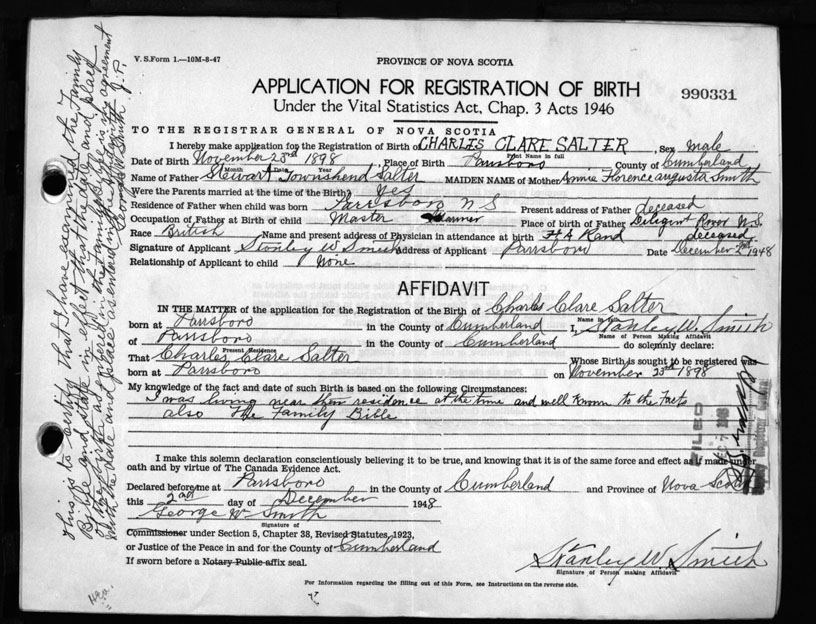 V. S. Form 1.—10M-8-47
PROVINCE OF NOVA SCOTIA
APPLICATION FOR REGISTRATION OF BIRTH
990331
Under the Vital Statistics Act, Chap. 3 Acts 1946
TO THE REGISTRAR GENERAL OF NOVA SCOTIA
I hereby make application for the Registration of Birth of CHARLES CLARE SALTER, Sex male
Print Name in full
Date of Birth November 23rd 1898, Place of Birth Parrsboro County of Cumberland
Month Date Year
Name of Father Stewart Townshend Salter MAIDEN NAME of Mother Annie Florence augusta Smith
Were the Parents married at the time of the Birth? Yes
Residence of Father when child was born Parrsboro N S Present address of Father deceased
Occupation of Father at Birth of child Master Place of birth of Father Diligent River N.S.
Race British Name and present address of Physician in attendance at birth H A Rand deceased
Signature of Applicant Stanley W Smith Address of Applicant Parrsboro Date December 2nd 1948
Relationship of Applicant to child None
AFFIDAVIT
IN THE MATTER of the application for the Registration of the Birth of Charles Clare Salter
Name in full
born at Parrsboro in the County of Cumberland I, Stanley W. Smith
Name of Person Making Affidavit
of Parrsboro in the County of Cumberland do solemnly declare:
Present Residence
That Charles Clare Salter Whose Birth is sought to be registered was
born at Parrsboro on November 23rd 1898
My knowledge of the fact and date of such Birth is based on the following Circumstances:
I was living near their residence at the time and well known to the facts
also The Family Bible
I make this solemn declaration conscientiously believing it to be true, and knowing that it is of the same force and effect as if made under
oath and by virtue of The Canada Evidence Act.
Declared before me at Parrsboro in the County of Cumberland and Province of Nova Scotia
this 2nd day of December 1948
George W Smith
Signature of
Commissioner under Section 5, Chapter 38, Revised Statutes, 1923,
or Justice of the Peace in and for the County of Cumberland
If sworn before a Notary Public affix seal.
Stanley W. Smith
Signature of Person making Affidavit
For Information regarding the filling out of this Form, see Instructions on the reverse side.
This is to certify that I have examined the Family
Bible and state in effect that the date and place
of birth as recorded in the Family Bible is in agreement
with the date and place as entered in the application
George W Smith J. P.
FILED